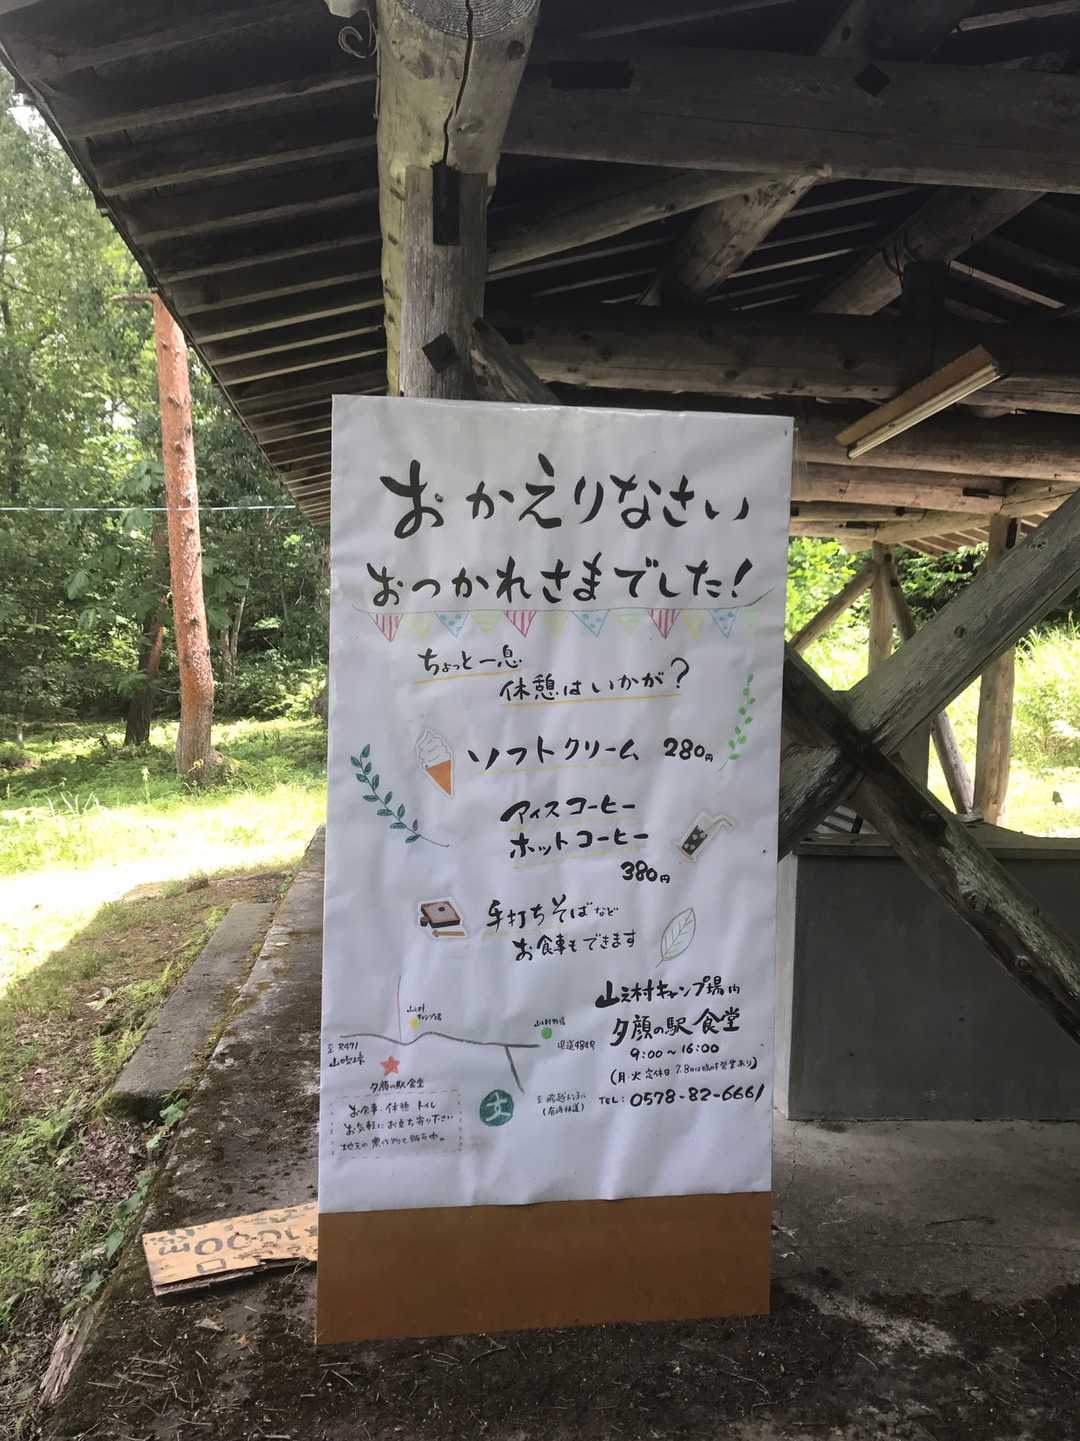 おかえりなさい
おつかれさまでした!
ちょっと一息
休憩はいかが?
ソフトクリーム 280円
アイスコーヒー
ホットコーヒー
380円
手打ちそばなど
お食事もできます
山之村キャンプ場内
夕顔の駅食堂
9:00～16:00
(月・火 定休日 7.8月は臨時営業あり)
TEL: 0578-82-6661
山之村
キャンプ場
県道484号
至 R471
夕顔の駅食堂
お食事・休憩・トイレ
お気軽にお立ち寄り下さい
文